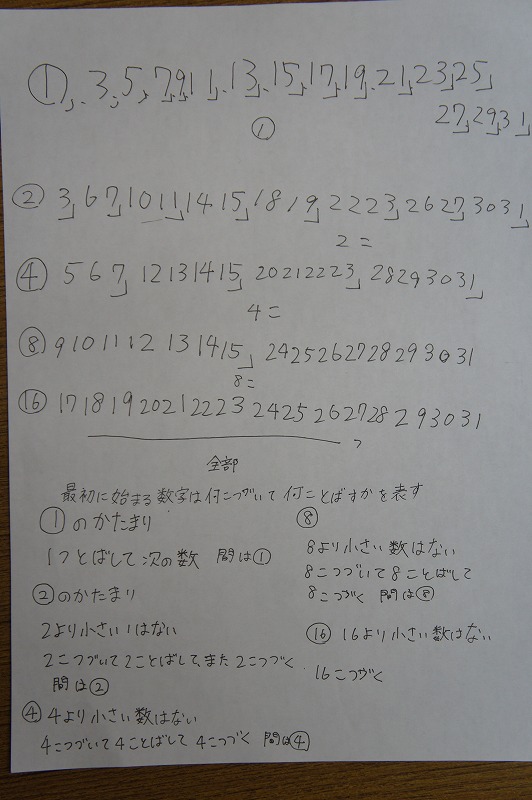 ①, 3, 5, 7, 9, 11, 13, 15, 17, 19, 21, 23, 25,
27, 29, 31
①
② 3, 6 7, 10 11, 14 15, 18 19, 22 23, 26 27, 30 31,
2こ
④ 5 6 7, 12 13 14 15, 20 21 22 23, 28 29 30 31,
4こ
⑧ 9 10 11 12 13 14 15, 24 25 26 27 28 29 30 31
8こ
⑯ 17 18 19 20 21 22 23 24 25 26 27 28 29 30 31
全部
最初に始まる数字は何こつづいて何ことばすかを表す
①のかたまり
1つとばして次の数 間は①
②のかたまり
2より小さい1はない
2こつづいて2ことばして、また2こつづく
間は②
④ 4より小さい数はない
4こつづいて4ことばして4こつづく 間は④
⑧
8より小さい数はない
8こつづいて8ことばして
8こつづく 間は⑧
⑯ 16より小さい数はない
16こつづく